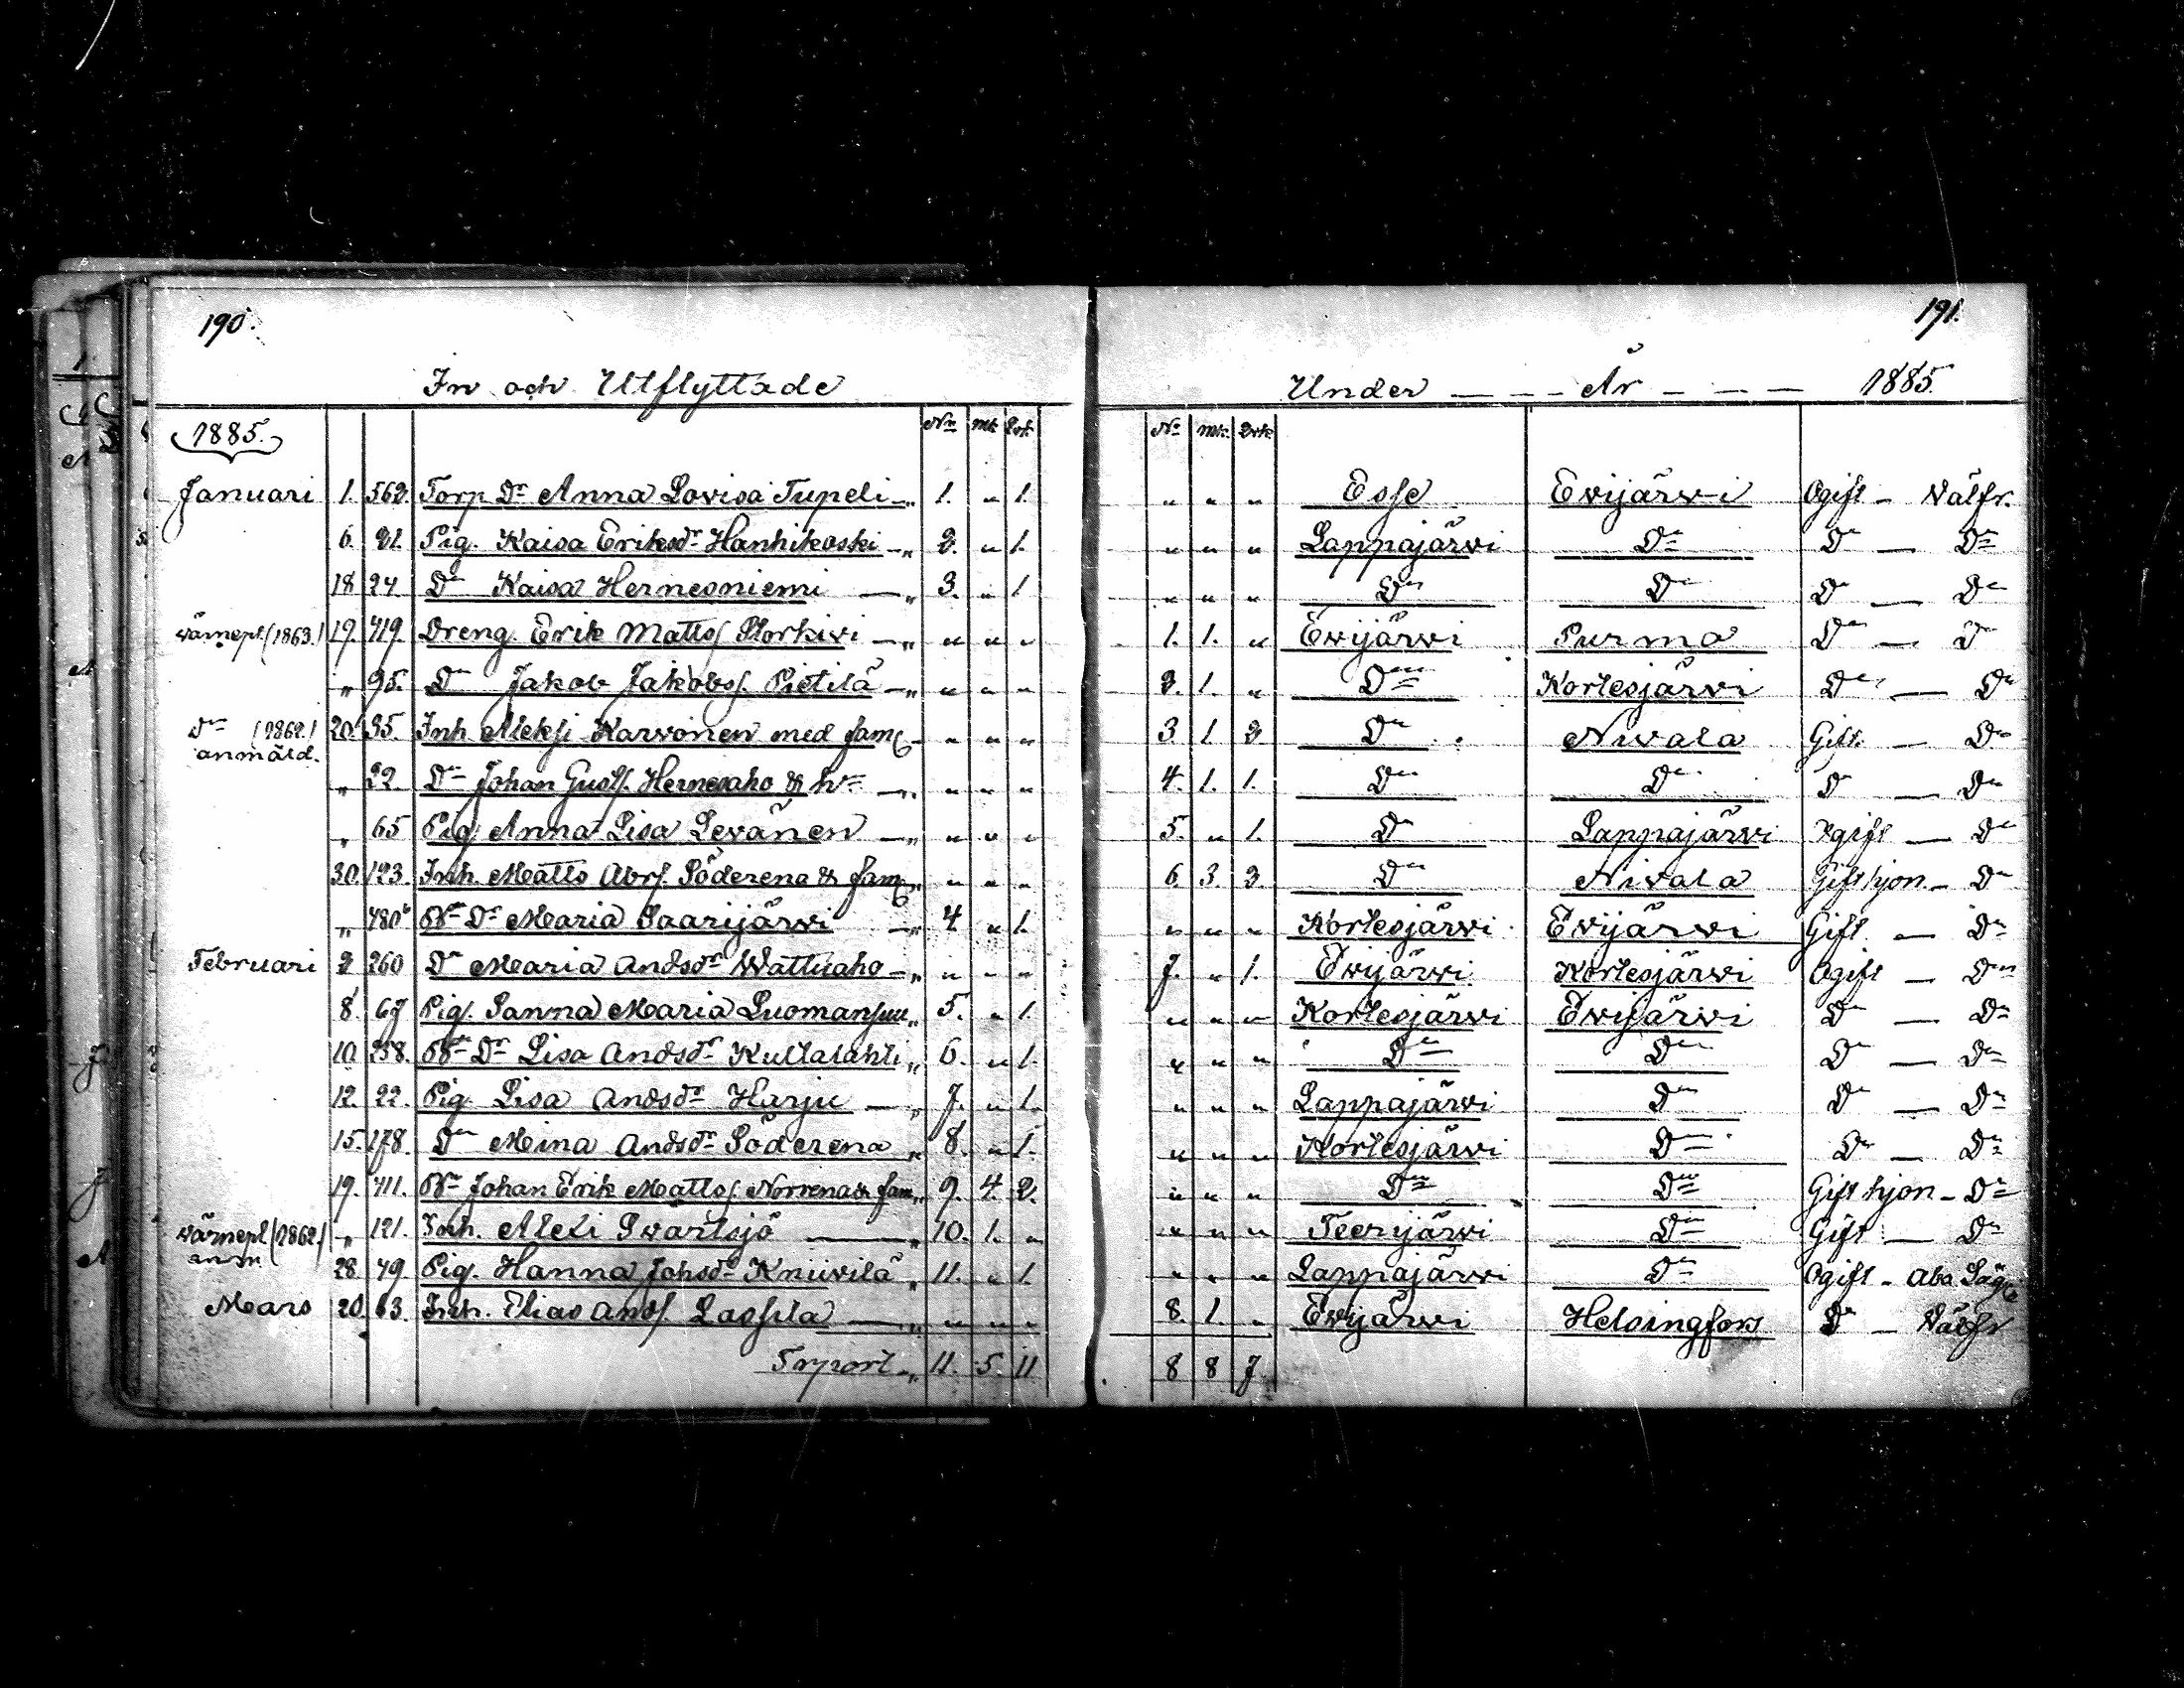 190.
191.
In och Utflyttade
Under — — — År — — — 1885.
1885.
No mk. Qvk.
No mk. Qvk.
Januari 1. 562. Torp. Dr Anna Lovisa Tupeli „ 1. „ 1. „ „ „ Esse Ewijärwi Ogift — Välfr.
6. 21. Pig. Kaisa Eriksdr Hanhikoski „ 2. „ 1. „ „ „ Lappajärwi Do Do — Do
18 24 Do Kaisa Hernesniemi — „ 3. „ 1 „ „ „ Do Do Do — Do
värnepl. (1863.) 19. 719. Dreng. Erik Matts. Storkiwi — „ „ „ „ 1. 1. „ Ewijärwi Purmo Do — Do
„ 95. Do Jakob Jakobs. Pietilä — „ „ „ „ 2. 1. „ Do Kortesjärwi Do — Do
Do (1862.) 20. 35. Inh. Aleksi Karvonen med fam. „ „ „ 3. 1. 2. Do Nivala Gift. — Do
anmäld.
„ 22. Do Johan Gusts. Hernesaho & h. — „ „ „ „ 4. 1. 1. Do Do Do — Do
„ 65 Pig. Anna Lisa Levänen — „ „ „ „ 5. „ 1. Do Lappajärwi Ogift — Do
30. 123. Inh. Matts Abrs. Söderena & fam. „ „ „ „ 6. 3. 3. Do Nivala Gift hjon — Do
„ 780 Bn Dr Maria Saarijärwi — „ 4 „ 1. „ „ „ Kortesjärwi Ewijärwi Gift — Do
Februari 2 260 Do Maria Andsdr Wattuaho — „ „ „ „ 7. „ 1. Ewijärwi Kortesjärwi Ogift — Do
8. 67 Pig. Sanna Maria Luomansuu „ 5. „ 1. „ „ „ Kortesjärwi Ewijärwi Do — Do
10. 258. Bn Dr Lisa Andsdr Kultalahti „ 6. „ 1. „ „ „ Do Do Do — Do
12. 22. Pig. Lisa Andsdr Harju — „ 7. „ 1. „ „ „ Lappajärwi Do Do — Do
15. 178. Do Mina Andsdr Söderena „ 8. „ 1. „ „ „ Kortesjärwi Do Do — Do
19. 711. Bn Johan Erik Matts. Norrena & fam. „ 9. 4. 2. „ „ „ Do Do Gift hjon — Do
värnepl. (1862.) „ 121. Inh. Aleti Svartsjö — „ 10. 1. „ „ „ „ Teerijärwi Do Gift — Do
anm.
28 79. Pig. Hanna Johsdr Kniivilä „ 11. „ 1. „ „ „ Lappajärwi Do Ogift —
Mars 20. 63. Inh. Elias Ands. Lassila — „ „ „ „ 8. 1. „ Ewijärwi Helsingfors Do — Välfr
Trport „ 11. 5. 11 8 8 7